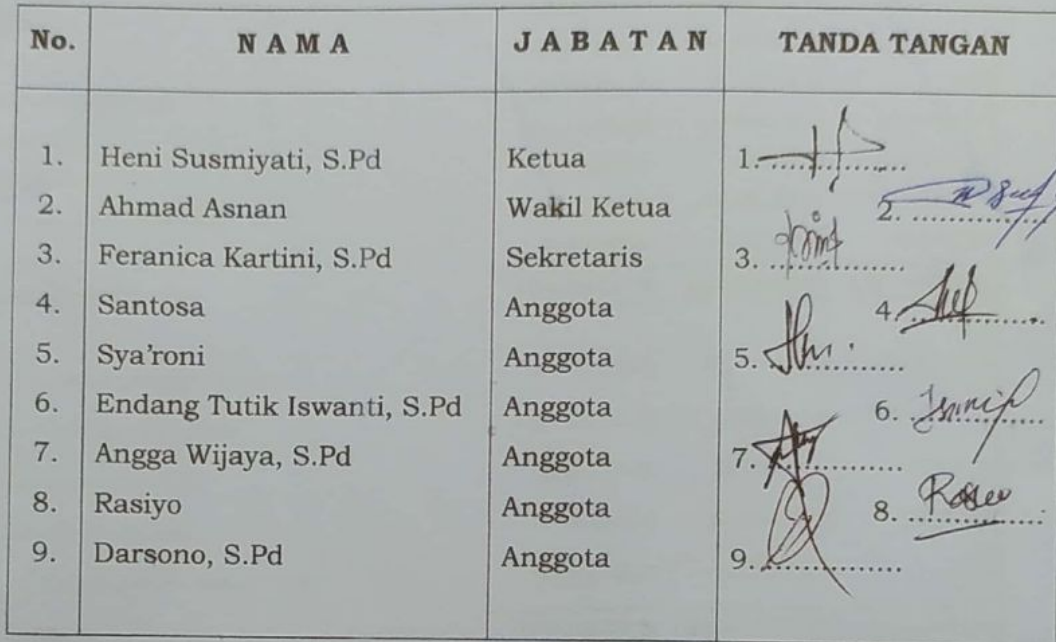 No. N A M A J A B A T A N TANDA TANGAN
1. Heni Susmiyati, S.Pd Ketua 1. ..............
2. Ahmad Asnan Wakil Ketua 2. ..............
3. Feranica Kartini, S.Pd Sekretaris 3. ..............
4. Santosa Anggota 4. ..............
5. Sya'roni Anggota 5. ..............
6. Endang Tutik Iswanti, S.Pd Anggota 6. ..............
7. Angga Wijaya, S.Pd Anggota 7. ..............
8. Rasiyo Anggota 8. ..............
9. Darsono, S.Pd Anggota 9. ..............